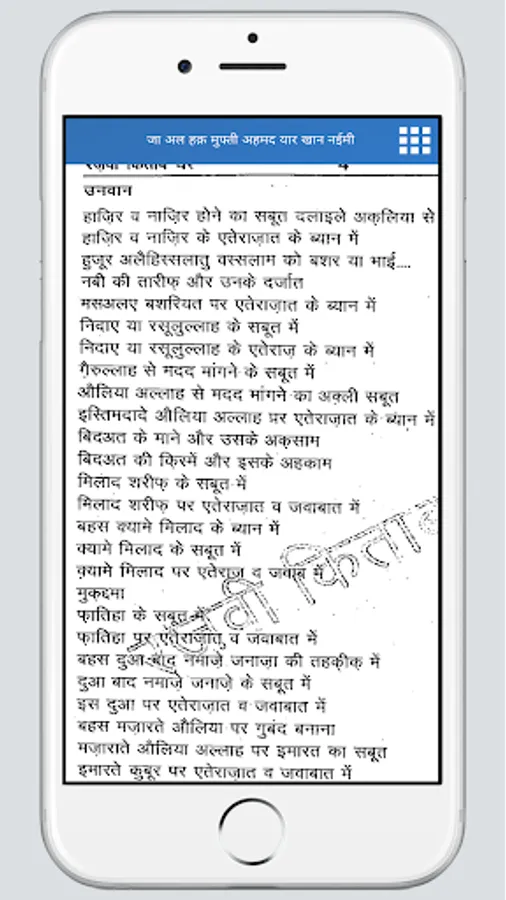 जा अल हक़ मुफ्ती अहमद यार खान नईमी
रज़वी किताब घर 4
उनवान
हाज़िर व नाज़िर होने का सबूत दलाइले अक़लिया से
हाज़िर व नाज़िर के एतेराज़ात के ब्यान में
हुजूर अलैहिस्सलातु वस्सलाम को बशर या भाई....
नबी की तारीफ़ और उनके दर्जात
मसअलए बशरियत पर एतेराज़ात के ब्यान में
निदाए या रसूलुल्लाह के सबूत में
निदाए या रसूलुल्लाह के एतेराज़ के ब्यान में
ग़ैरुल्लाह से मदद मांगने के सबूत में
औलिया अल्लाह से मदद मांगने का अक़्ली सबूत
इस्तिमदादे औलिया अल्लाह पर एतेराज़ात के ब्यान में
बिदअत के माने और उसके अक़साम
बिदअत की क़िस्में और इसके अहकाम
मिलाद शरीफ़ के सबूत में
मिलाद शरीफ़ पर एतेराज़ात व जवाबात में
बहस क्यामे मिलाद के ब्यान में
क्यामे मिलाद के सबूत में
क़्यामे मिलाद पर एतेराज़ व जवाब में
मुक़द्दमा
फ़ातिहा के सबूत में
फ़ातिहा पर एतेराज़ात व जवाबात में
बहस दुआ बाद नमाज़े जनाज़ा की तहक़ीक़ में
दुआ बाद नमाज़े जनाज़े के सबूत में
इस दुआ पर एतेराज़ात व जवाबात में
बहस मज़ारते औलिया पर गुबंद बनाना
मज़ाराते औलिया अल्लाह पर इमारत का सबूत
इमारते कुबूर पर एतेराज़ात व जवाबात में
रज़वी किताब